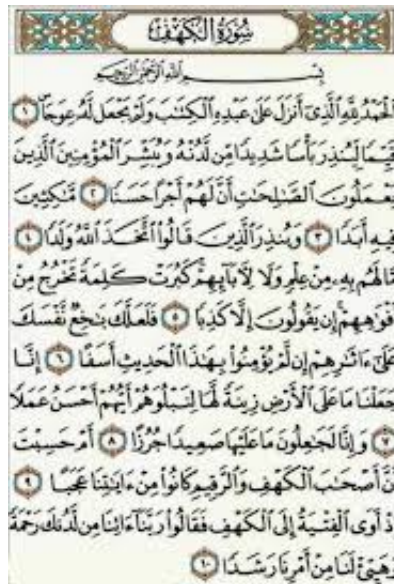 سُورَةُ الكَهْفِ
بِسْمِ اللَّهِ الرَّحْمَٰنِ الرَّحِيمِ
الْحَمْدُ لِلَّهِ الَّذِي أَنزَلَ عَلَىٰ عَبْدِهِ الْكِتَٰبَ وَلَمْ يَجْعَل لَّهُ عِوَجَا ۜ ١
قَيِّمًا لِّيُنذِرَ بَأْسًا شَدِيدًا مِّن لَّدُنْهُ وَيُبَشِّرَ الْمُؤْمِنِينَ الَّذِينَ
يَعْمَلُونَ الصَّٰلِحَٰتِ أَنَّ لَهُمْ أَجْرًا حَسَنًا ٢ مَّٰكِثِينَ
فِيهِ أَبَدًا ٣ وَيُنذِرَ الَّذِينَ قَالُوا اتَّخَذَ اللَّهُ وَلَدًا ٤
مَّا لَهُم بِهِ مِنْ عِلْمٍ وَلَا لِءَابَائِهِمْ كَبُرَتْ كَلِمَةً تَخْرُجُ مِنْ
فْوَٰهِهِمْ إِن يَقُولُونَ إِلَّا كَذِبًا ٥ فَلَعَلَّكَ بَٰخِعٌ نَّفْسَكَ
عَلَىٰ ءَاثَٰرِهِمْ إِن لَّمْ يُؤْمِنُوا بِهَٰذَا الْحَدِيثِ أَسَفًا ٦ إِنَّا
جَعَلْنَا مَا عَلَى الْأَرْضِ زِينَةً لَّهَا لِنَبْلُوَهُمْ أَيُّهُمْ أَحْسَنُ عَمَلًا
٧ وَإِنَّا لَجَٰعِلُونَ مَا عَلَيْهَا صَعِيدًا جُرُزًا ٨ أَمْ حَسِبْتَ
نَّ أَصْحَٰبَ الْكَهْفِ وَالرَّقِيمِ كَانُوا مِنْ ءَايَٰتِنَا عَجَبًا ٩
ذْ أَوَى الْفِتْيَةُ إِلَى الْكَهْفِ فَقَالُوا رَبَّنَا ءَاتِنَا مِن لَّدُنكَ رَحْمَةً
وَهَيِّئْ لَنَا مِنْ أَمْرِنَا رَشَدًا ١٠